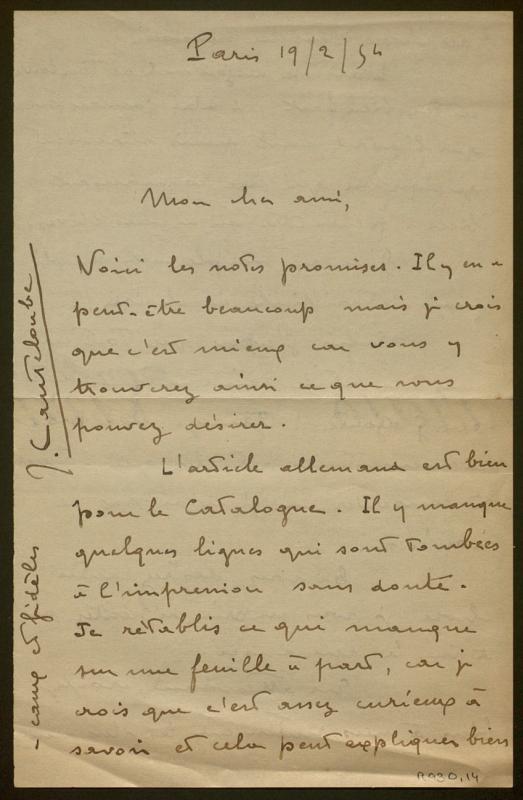 Paris 19/2/54
Mon cher ami,
Voici les notes promises. Il y en a
peut-être beaucoup mais je crois
que c'est mieux car vous y
trouverez ainsi ce que vous
pouvez désirer.
L'article allemand est bien
pour le Catalogue. Il y manque
quelques lignes qui sont tombées
à l'impression sans doute.
Je rétablis ce qui manque
sur une feuille à part, car je
crois que c'est assez curieux à
savoir et cela peut expliquer bien
- caux et fidèles
J. Canteloube
A030,14